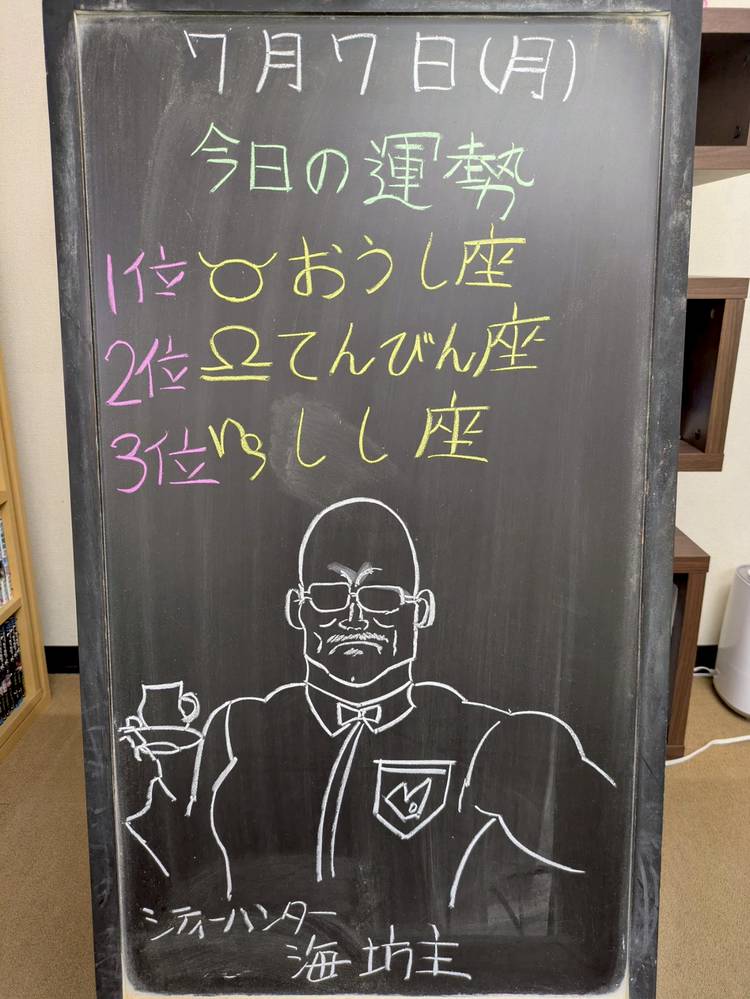 7月7日(月)
今日の運勢
1位♉おうし座
2位♎てんびん座
3位♑しし座
シティーハンター
海坊主